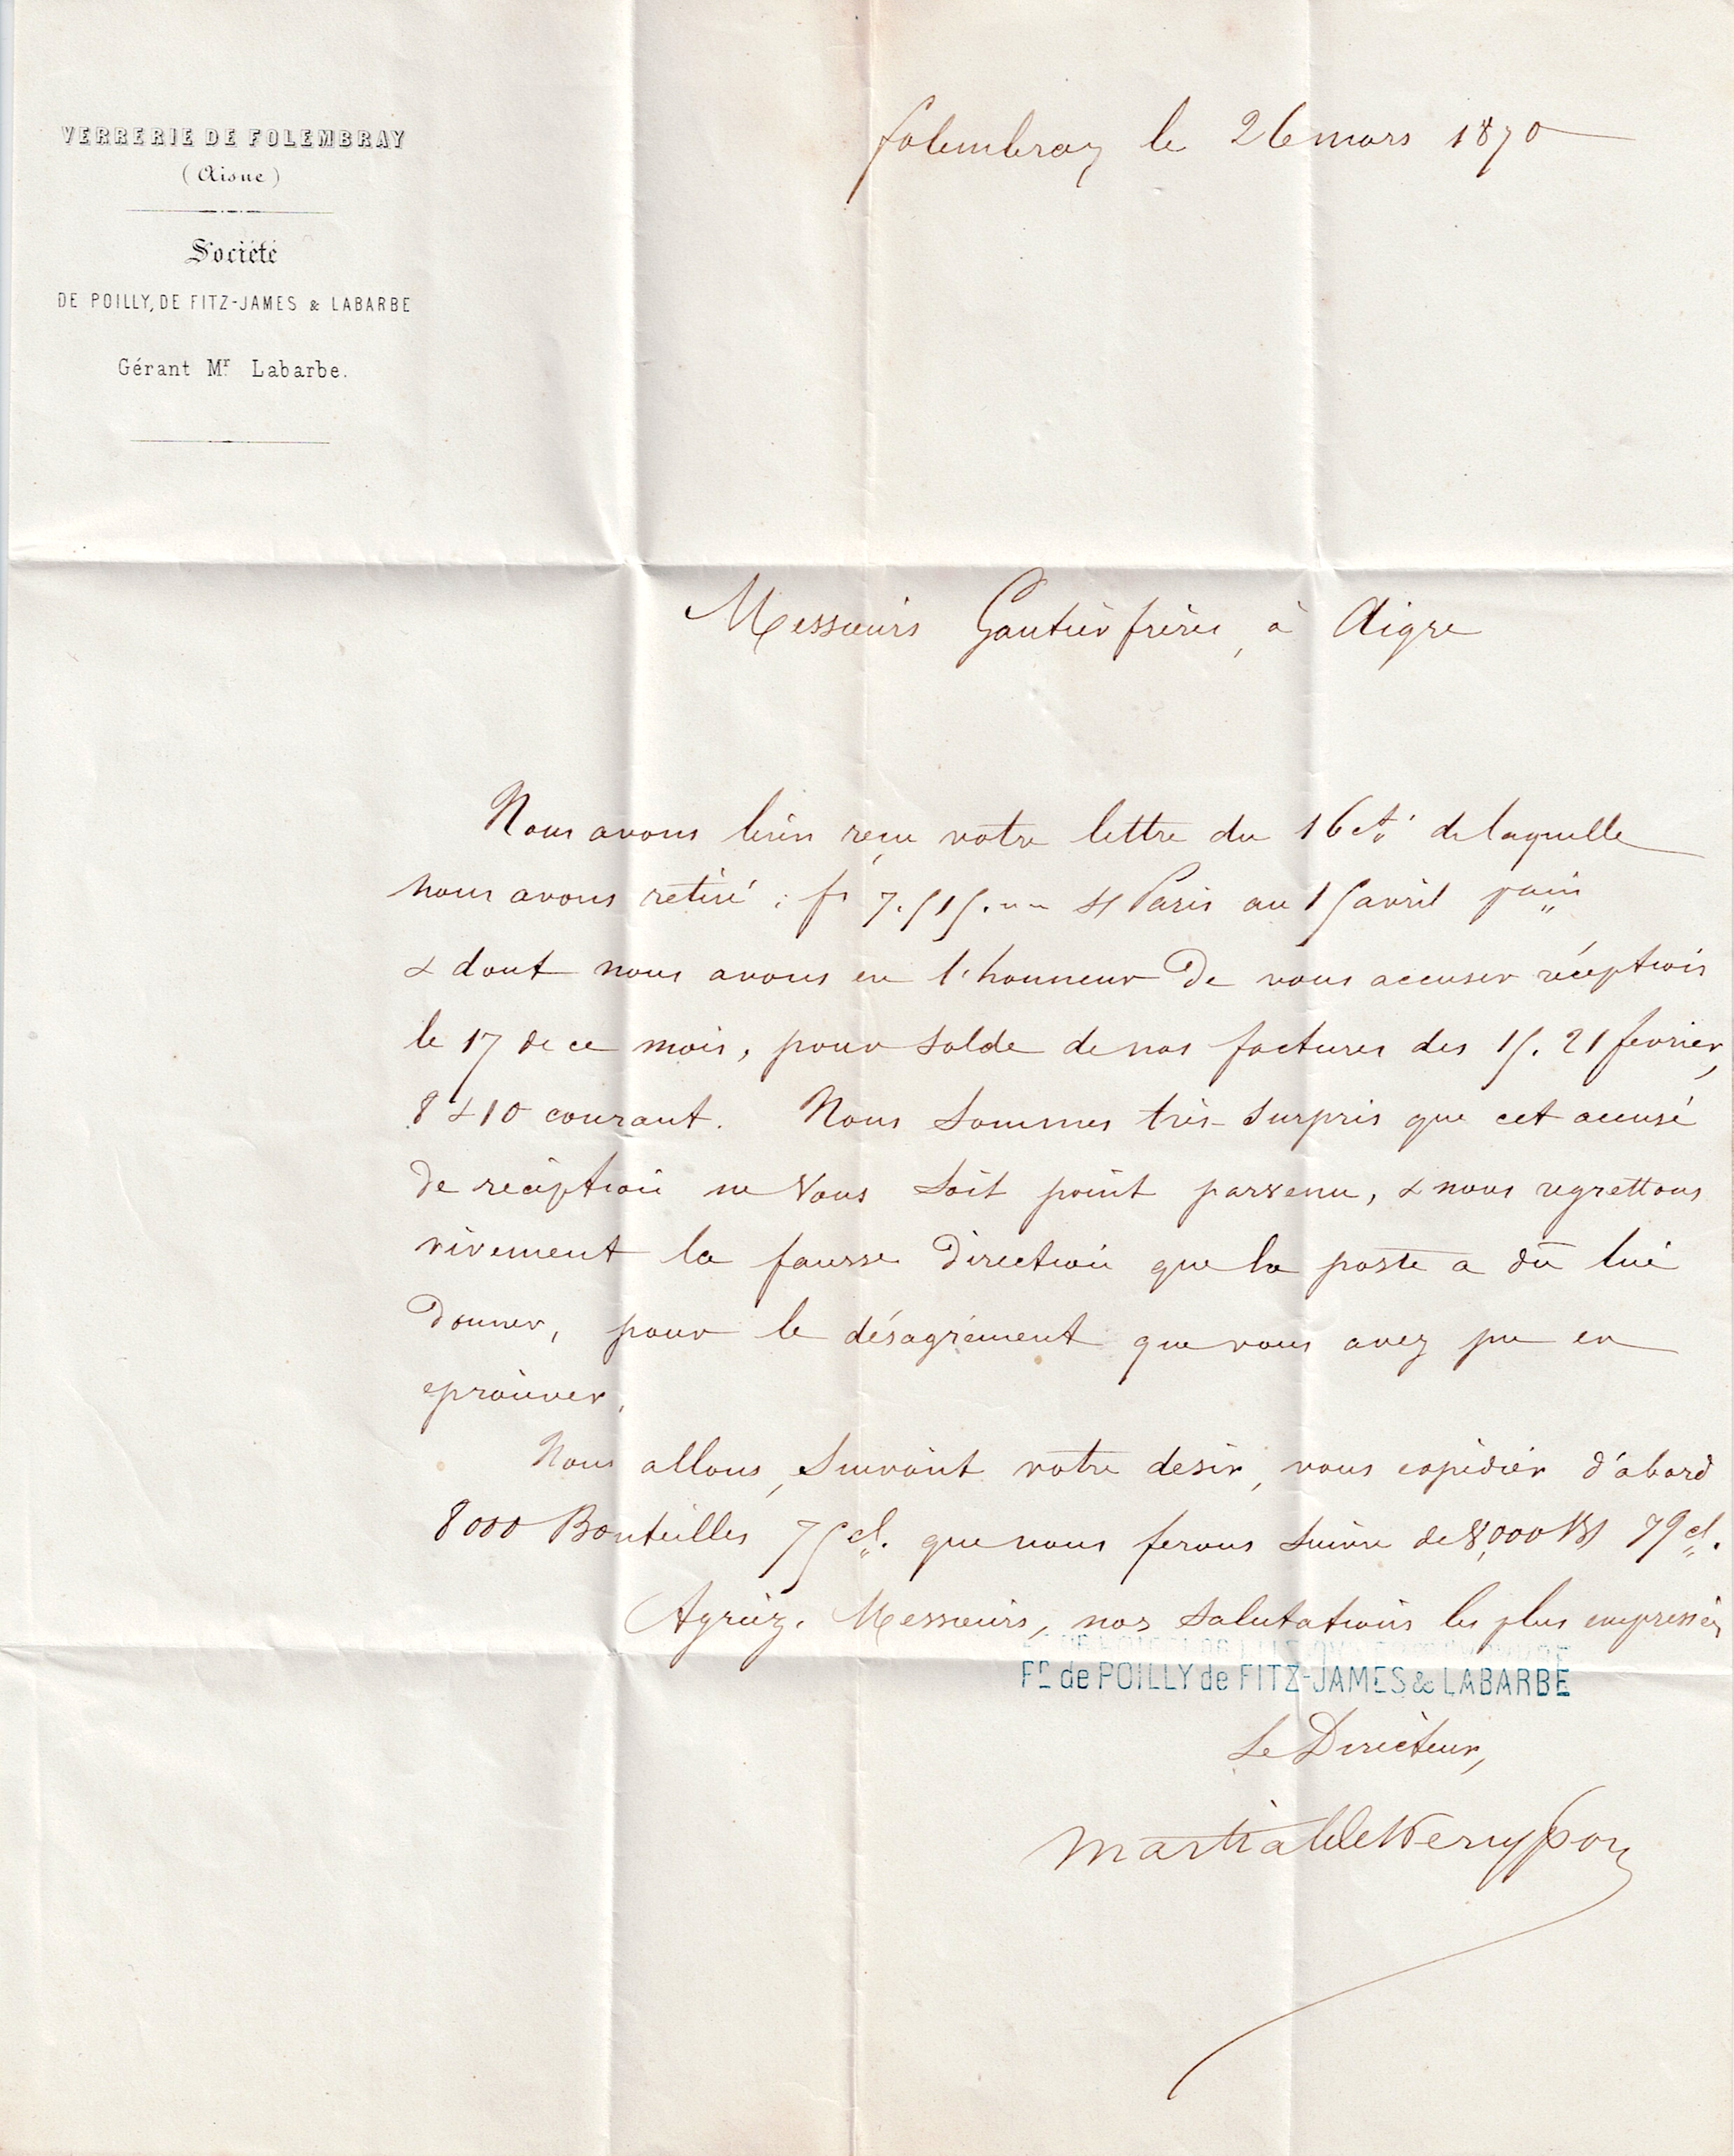 VERRERIE DE FOLEMBRAY
(Aisne)
Société
DE POILLY, DE FITZ-JAMES & LABARBE
Gérant Mr. Labarbe.
folembray le 26 mars 1870
Messieurs Gautier frères, à Aigre
Nous avons bien reçu votre lettre du 16 ct. de laquelle
nous avons retiré : fs 7.515. " " s/ Paris au 15 avril pain
& dont nous avons eu l'honneur de vous accuser réception
le 17 de ce mois, pour solde de nos factures des 15. 21 fevrier,
8 & 10 courant. Nous sommes très-surpris que cet accusé
de réception ne vous soit point parvenu, & nous regrettons
vivement la fausse direction que la poste a dû lui
donner, pour le désagrément que vous avez pu en
eprouver.
Nous allons, suivant votre desir, vous expédier d'abord
8000 Bouteilles 75 cl. que nous ferons suivre de 8,000 Bs 79 cl.
Agréez, Messieurs, nos salutations les plus empressées
Fs de POILLY de FITZ-JAMES & LABARBE
Le Directeur,